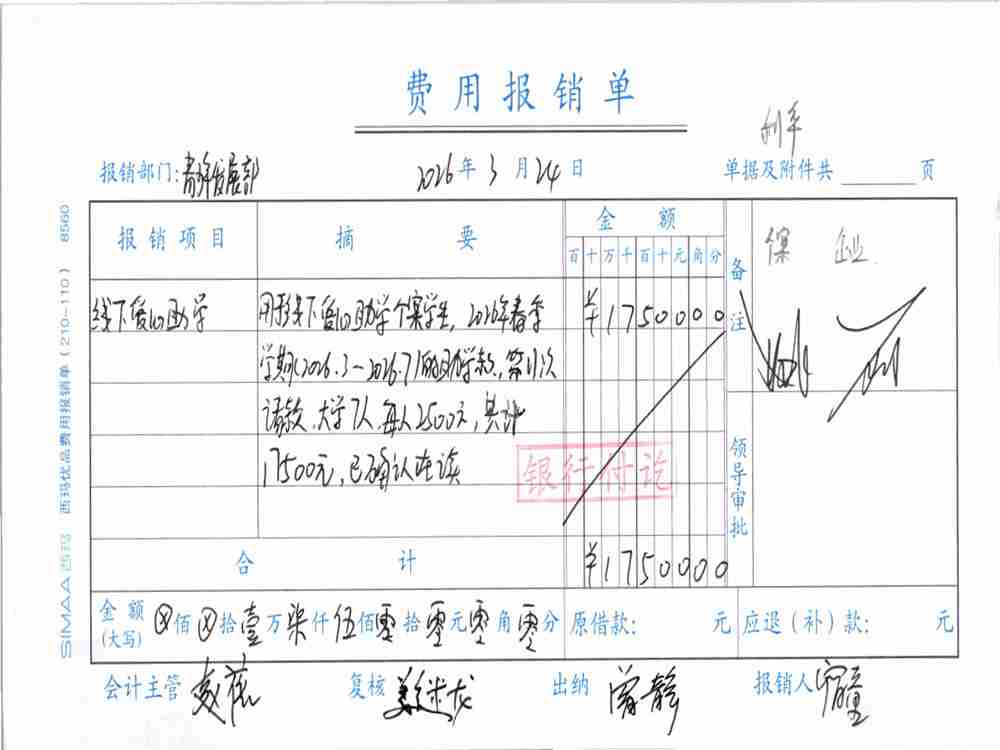 费用报销单
报销部门: 2026年3月24日 单据及附件共 页
报销项目 摘要 金额 备注
百十万千百十元角分
线下爱心助学 用于线下爱心助学个案学生, 2026年春季 ¥1750000
学期(2026.3-2026.7)的助学款,第1次
请款,大学7人,每人2500元,共计
17500元,已确认在读
银行付讫
领导审批
合计 ¥1750000
金额(大写) ⊗佰⊗拾壹万柒仟伍佰零拾零元零角零分 原借款: 元 应退(补)款: 元
会计主管 复核 出纳 曾静 报销人
SIMAA 西玛 西玛优品费用报销单(210-110) 8560